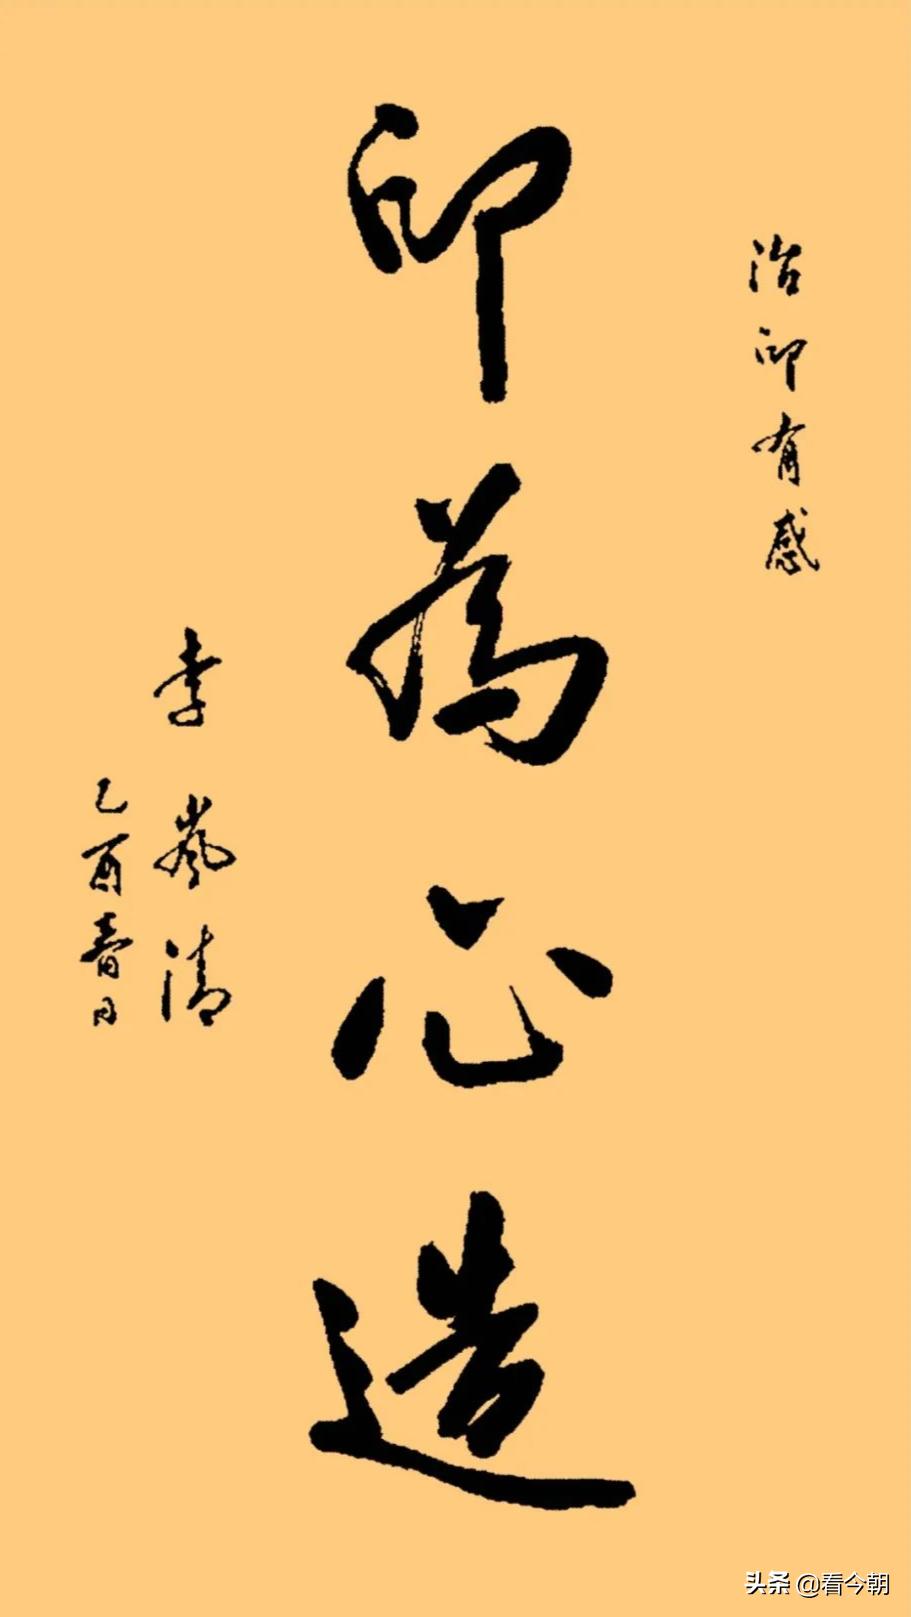 治印有感
印為心造
李嵐清
乙酉春日
头条 @看今朝